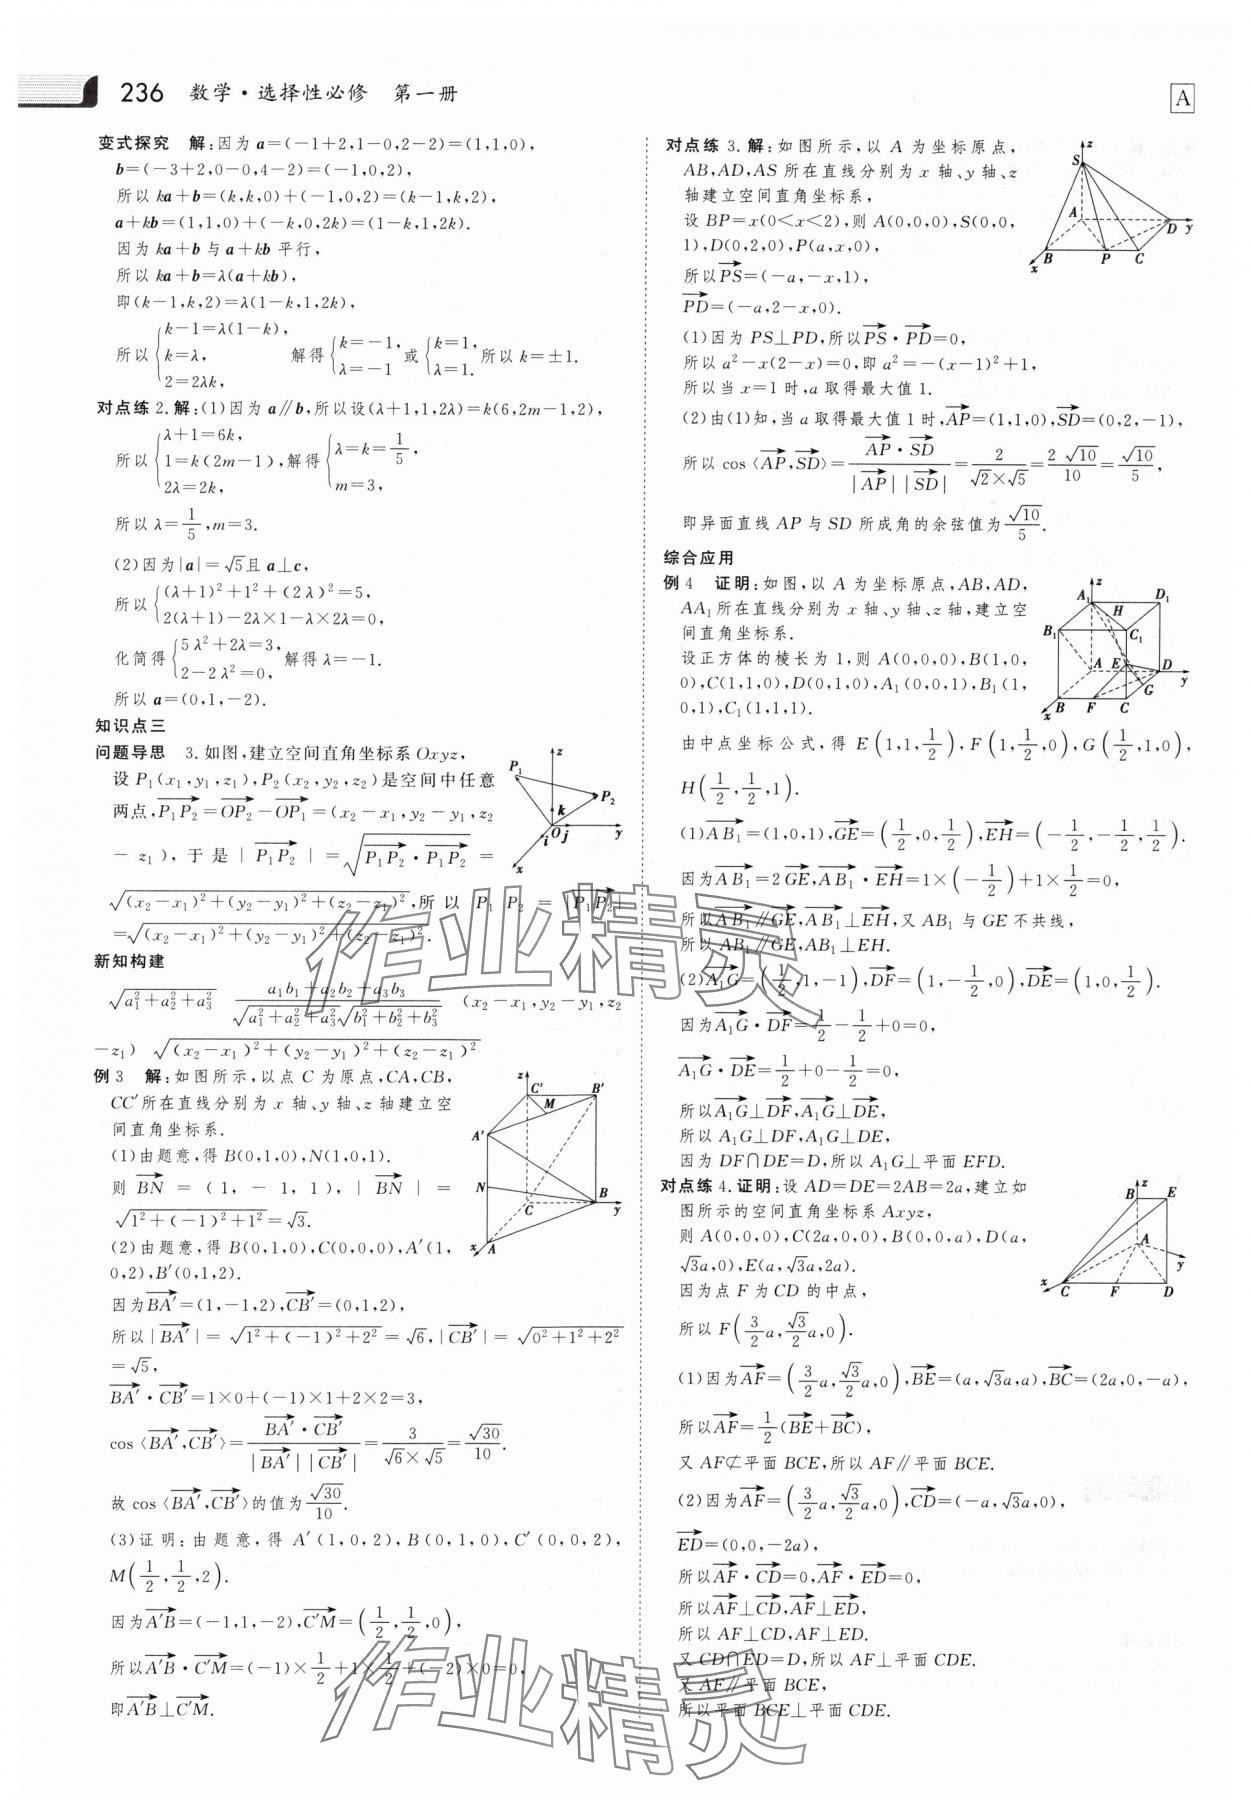 236 数学·选择性必修 第一册
A
变式探究 解:因为 a=(-1+2,1-0,2-2)=(1,1,0),
b=(-3+2,0-0,4-2)=(-1,0,2),
所以 ka+b=(k,k,0)+(-1,0,2)=(k-1,k,2),
a+kb=(1,1,0)+(-k,0,2k)=(1-k,1,2k).
因为 ka+b 与 a+kb 平行,
所以 ka+b=λ(a+kb),
即(k-1,k,2)=λ(1-k,1,2k),
所以 {k-1=λ(1-k), k=λ, 2=2λk, 解得 {k=-1, λ=-1 或 {k=1, λ=1. 所以 k=±1.
对点练 2.解:(1)因为 a∥b,所以设(λ+1,1,2λ)=k(6,2m-1,2),
所以 {λ+1=6k, 1=k(2m-1), 2λ=2k, 解得 {λ=k=1/5, m=3,
所以 λ=1/5,m=3.
(2)因为|a|=√5且 a⊥c,
所以 {(λ+1)²+1²+(2λ)²=5, 2(λ+1)-2λ×1-λ×2λ=0,
化简得 {5λ²+2λ=3, 2-2λ²=0, 解得 λ=-1.
所以 a=(0,1,-2).
知识点三
问题导思 3.如图,建立空间直角坐标系 Oxyz,
设 P₁(x₁,y₁,z₁),P₂(x₂,y₂,z₂)是空间中任意
两点,P₁P₂→=OP₂→-OP₁→=(x₂-x₁,y₂-y₁,z₂
-z₁),于是|P₁P₂→|=√(P₁P₂→·P₁P₂→)=
√((x₂-x₁)²+(y₂-y₁)²+(z₂-z₁)²),所以 P₁P₂=|P₁P₂→|
=√((x₂-x₁)²+(y₂-y₁)²+(z₂-z₁)²).
z P₁ P₂ k i O j y x
新知构建
√(a₁²+a₂²+a₃²) (a₁b₁+a₂b₂+a₃b₃)/(√(a₁²+a₂²+a₃²)√(b₁²+b₂²+b₃²)) (x₂-x₁,y₂-y₁,z₂
-z₁) √((x₂-x₁)²+(y₂-y₁)²+(z₂-z₁)²)
例 3 解:如图所示,以点 C 为原点,CA,CB,
CC′所在直线分别为 x 轴、y 轴、z 轴建立空
间直角坐标系.
(1)由题意,得 B(0,1,0),N(1,0,1).
则 BN→=(1,-1,1),|BN→|=
√(1²+(-1)²+1²)=√3.
(2)由题意,得 B(0,1,0),C(0,0,0),A′(1,
0,2),B′(0,1,2).
z C′ B′ M A′ N C B y x A
因为BA′→=(1,-1,2),CB′→=(0,1,2),
所以|BA′→|=√(1²+(-1)²+2²)=√6,|CB′→|=√(0²+1²+2²)
=√5,
BA′→·CB′→=1×0+(-1)×1+2×2=3,
cos〈BA′→,CB′→〉=(BA′→·CB′→)/(|BA′→||CB′→|)=3/(√6×√5)=√30/10.
故 cos〈BA′→,CB′→〉的值为√30/10.
(3)证明:由题意,得 A′(1,0,2),B(0,1,0),C′(0,0,2),
M(1/2,1/2,2).
因为A′B→=(-1,1,-2),C′M→=(1/2,1/2,0),
所以A′B→·C′M→=(-1)×1/2+1×1/2+(-2)×0=0,
即A′B→⊥C′M→.
对点练 3.解:如图所示,以 A 为坐标原点,
AB,AD,AS 所在直线分别为 x 轴、y 轴、z
轴建立空间直角坐标系,
设 BP=x(0<x<2),则 A(0,0,0),S(0,0,
1),D(0,2,0),P(a,x,0),
所以PS→=(-a,-x,1),
PD→=(-a,2-x,0).
z S A D y B P C x
(1)因为 PS⊥PD,所以PS→·PD→=0,
所以 a²-x(2-x)=0,即 a²=-(x-1)²+1,
所以当 x=1 时,a 取得最大值 1.
(2)由(1)知,当 a 取得最大值 1 时,AP→=(1,1,0),SD→=(0,2,-1),
所以 cos〈AP→,SD→〉=(AP→·SD→)/(|AP→||SD→|)=2/(√2×√5)=2√10/10=√10/5,
即异面直线 AP 与 SD 所成角的余弦值为√10/5.
综合应用
例 4 证明:如图,以 A 为坐标原点,AB,AD,
AA₁所在直线分别为 x 轴、y 轴、z 轴,建立空
间直角坐标系.
设正方体的棱长为 1,则 A(0,0,0),B(1,0,
0),C(1,1,0),D(0,1,0),A₁(0,0,1),B₁(1,
0,1),C₁(1,1,1).
z A₁ D₁ H B₁ C₁ A E D y G B F C x
由中点坐标公式,得 E(1,1,1/2),F(1,1/2,0),G(1/2,1,0),
H(1/2,1/2,1).
(1)AB₁→=(1,0,1),GE→=(1/2,0,1/2),EH→=(-1/2,-1/2,1/2).
因为AB₁→=2GE→,AB₁→·EH→=1×(-1/2)+1×1/2=0,
所以AB₁→∥GE→,AB₁→⊥EH→,又 AB₁ 与 GE 不共线,
所以 AB₁∥GE,AB₁⊥EH.
(2)A₁G→=(1/2,1,-1),DF→=(1,-1/2,0),DE→=(1,0,1/2).
因为A₁G→·DF→=1/2-1/2+0=0,
A₁G→·DE→=1/2+0-1/2=0,
所以A₁G→⊥DF→,A₁G→⊥DE→,
所以 A₁G⊥DF,A₁G⊥DE,
因为 DF∩DE=D,所以 A₁G⊥平面 EFD.
对点练 4.证明:设 AD=DE=2AB=2a,建立如
图所示的空间直角坐标系 Axyz,
则 A(0,0,0),C(2a,0,0),B(0,0,a),D(a,
√3a,0),E(a,√3a,2a).
因为点 F 为 CD 的中点,
所以 F(3/2a,√3/2a,0).
z B E A y x C F D
(1)因为AF→=(3/2a,√3/2a,0),BE→=(a,√3a,a),BC→=(2a,0,-a),
所以AF→=1/2(BE→+BC→),
又 AF⊄平面 BCE,所以 AF∥平面 BCE.
(2)因为AF→=(3/2a,√3/2a,0),CD→=(-a,√3a,0),
ED→=(0,0,-2a),
所以AF→·CD→=0,AF→·ED→=0,
所以AF→⊥CD→,AF→⊥ED→,
所以 AF⊥CD,AF⊥ED.
又 CD∩ED=D,所以 AF⊥平面 CDE.
又 AF∥平面 BCE,
所以平面 BCE⊥平面 CDE.
作业精灵
作业精灵